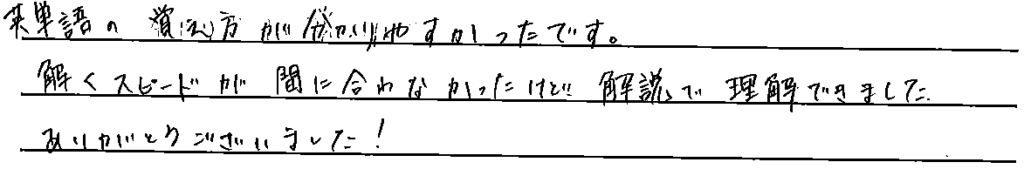 英単語の覚え方が分かりやすかったです。
解くスピードが間に合わなかったけど解説で理解できました
ありがとうございました!